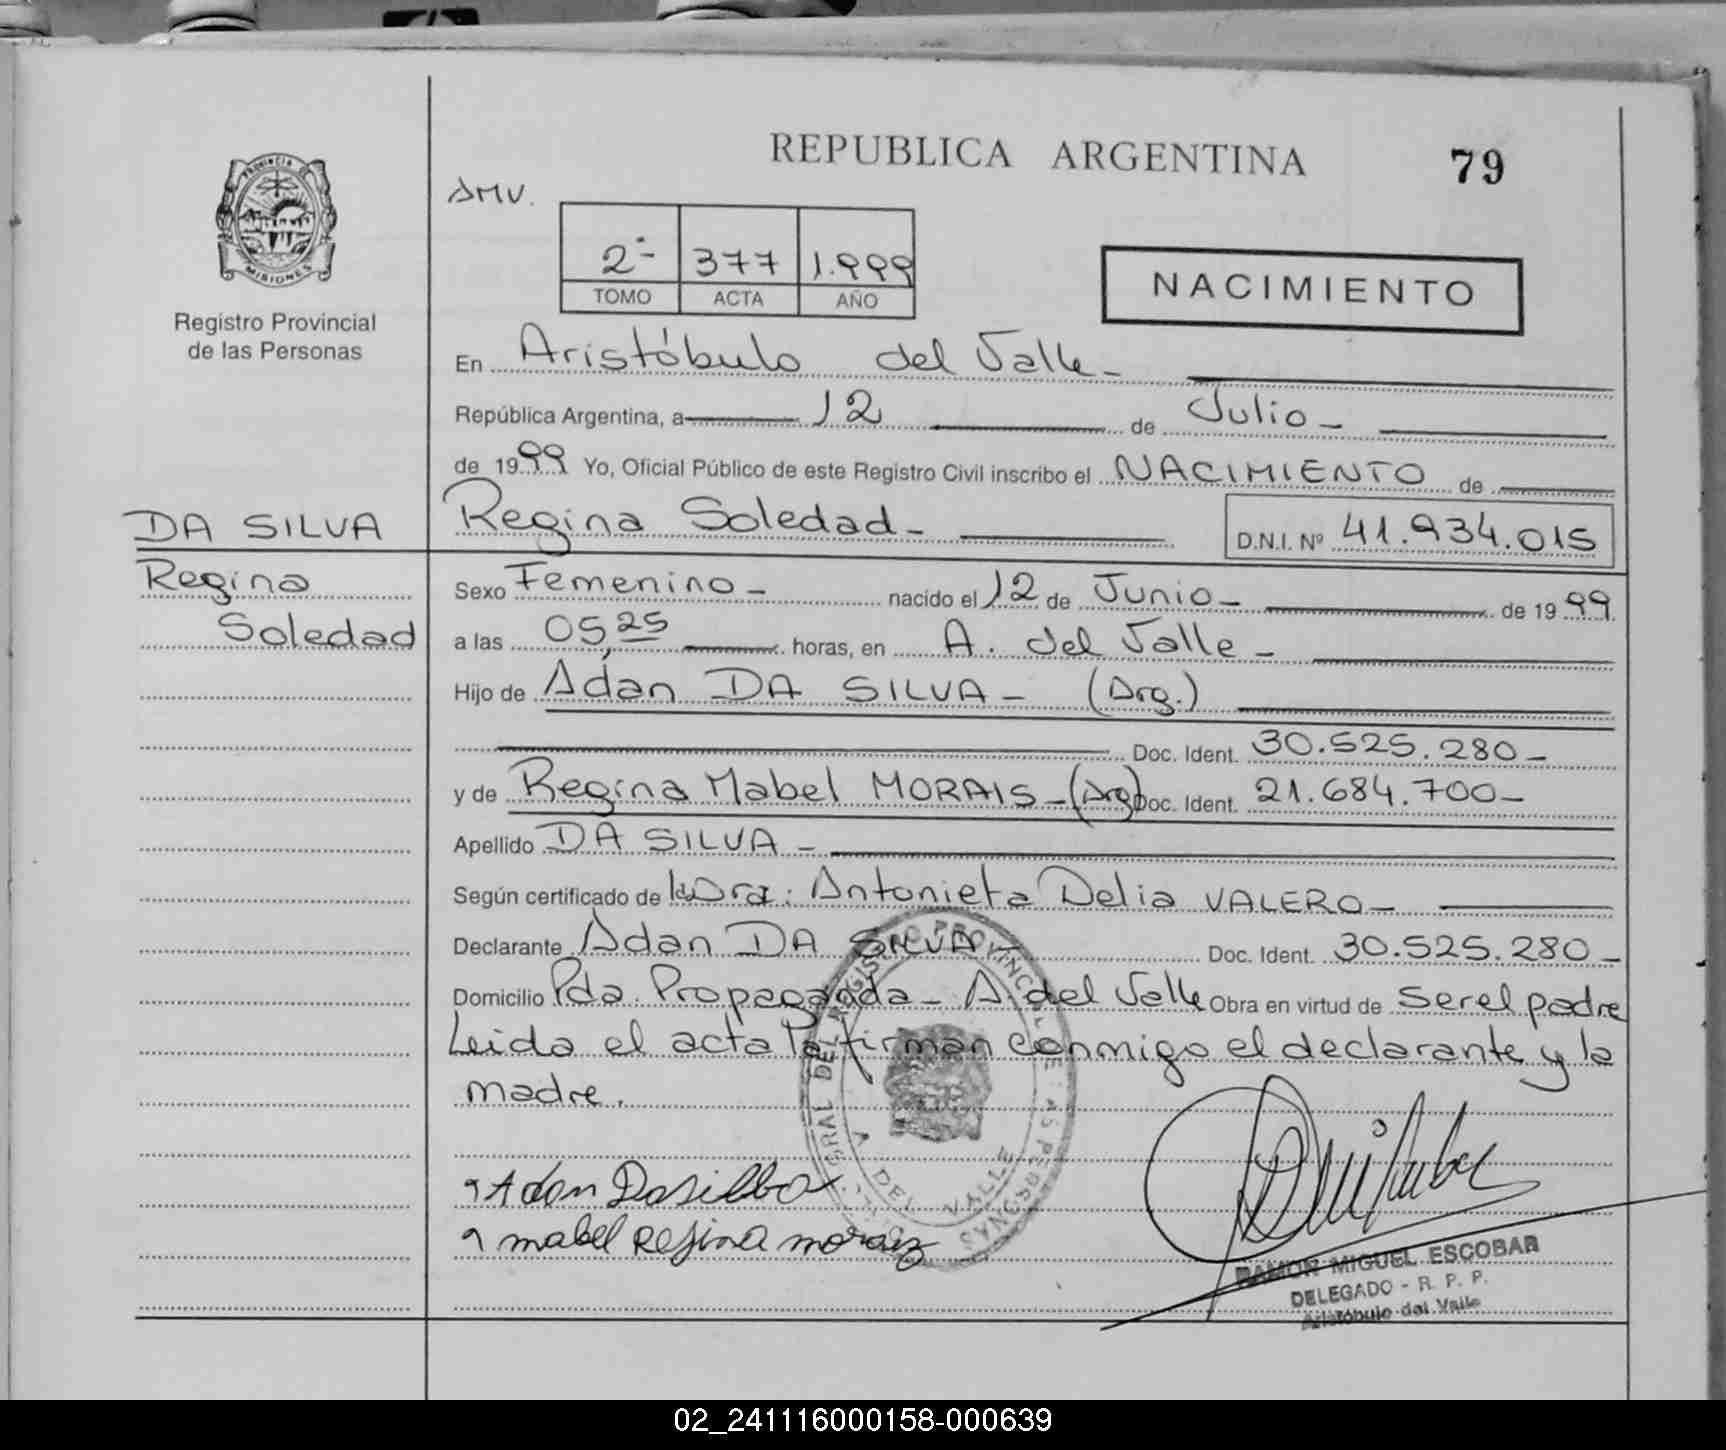 REPUBLICA ARGENTINA
79
PROVINCIA DE
MISIONES
Registro Provincial
de las Personas
AMV.
2- 377 1.999
TOMO ACTA AÑO
NACIMIENTO
En Aristóbulo del Valle-
República Argentina, a 12 de Julio-
de 1999 Yo, Oficial Público de este Registro Civil inscribo el NACIMIENTO de
Regina Soledad-
D.N.I. Nº 41.934.015
DA SILVA
Regina
Soledad
Sexo Femenino- nacido el 12 de Junio- de 1999
a las 05,25 horas, en A. del Valle-
Hijo de Adán DA SILVA- (Arg.)
Doc. Ident. 30.525.280-
y de Regina Mabel MORAIS-(Arg) Doc. Ident. 21.684.700-
Apellido DA SILVA-
Según certificado de la Dra: Antonieta Delia VALERO-
Declarante Adán DA SILVA- Doc. Ident. 30.525.280-
Domicilio Pda. Propaganda- A. del Valle Obra en virtud de ser el padre
Leida el acta la firman conmigo el declarante y la
madre.
Adan Dasilba
mabel Regina moraiz
A. DEL VALLE
RAMON MIGUEL ESCOBAR
DELEGADO - R. P. P.
Aristóbulo del Valle
02_241116000158-000639